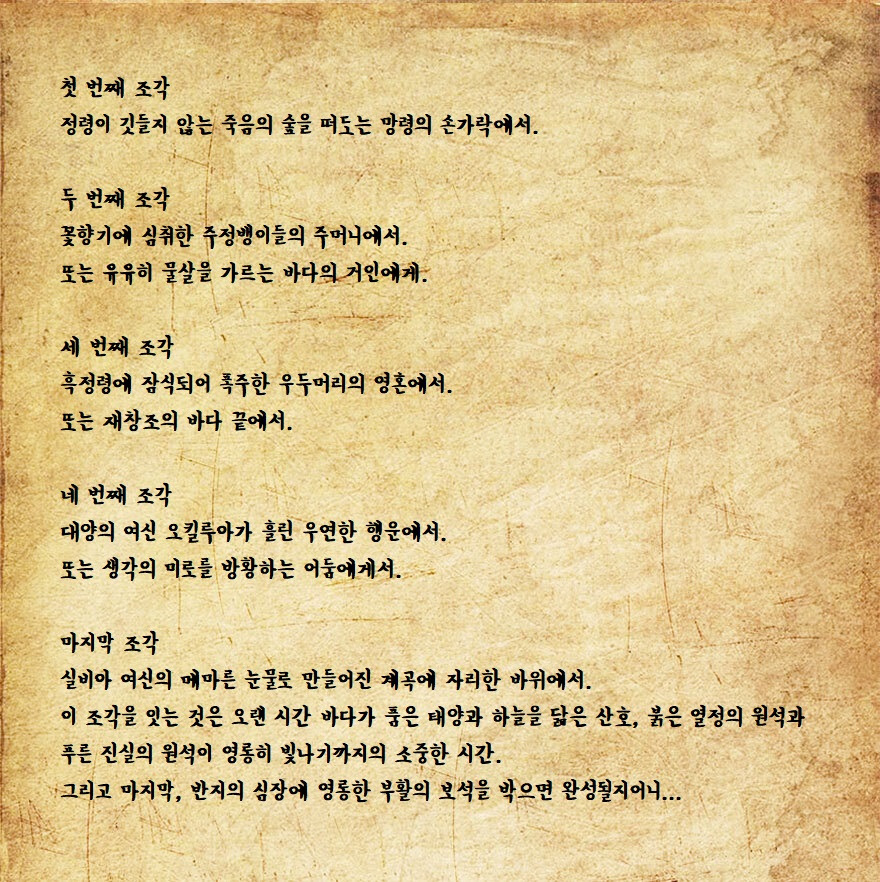 첫 번째 조각
정령이 깃들지 않는 죽음의 숲을 떠도는 망령의 손가락에서.
두 번째 조각
꽃향기에 심취한 주정뱅이들의 주머니에서.
또는 유유히 물살을 가르는 바다의 거인에게.
세 번째 조각
흑정령에 잠식되어 폭주한 우두머리의 영혼에서.
또는 재창조의 바다 끝에서.
네 번째 조각
대양의 여신 오킬루아가 흘린 우연한 행운에서.
또는 생각의 미로를 방황하는 어둠에게서.
마지막 조각
실비아 여신의 메마른 눈물로 만들어진 계곡에 자리한 바위에서.
이 조각을 잇는 것은 오랜 시간 바다가 품은 태양과 하늘을 닮은 산호, 붉은 열정의 원석과
푸른 진실의 원석이 영롱히 빛나기까지의 소중한 시간.
그리고 마지막, 반지의 심장에 영롱한 부활의 보석을 박으면 완성될지어니...